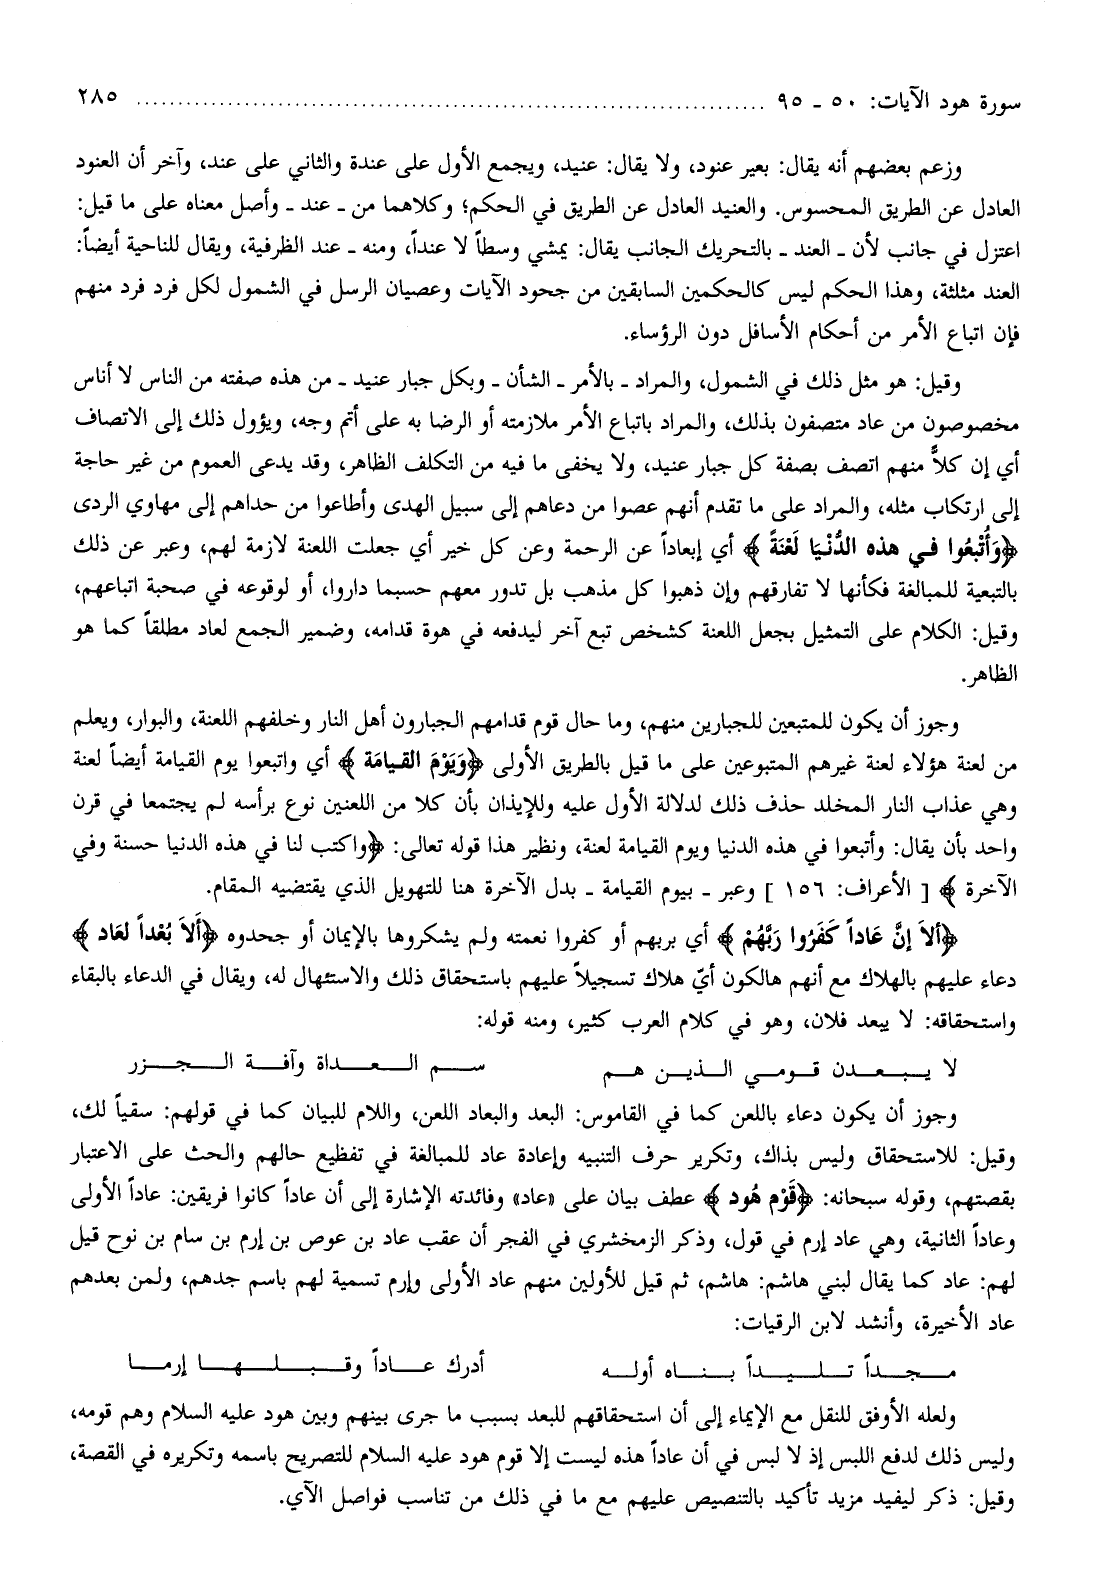 سورة هود الآيات: ٥٠ ـ ٩٥ ........................................................ ٢٨٥
وزعم بعضهم أنه يقال: بعير عنود، ولا يقال: عنيد، ويجمع الأول على عندة والثاني على عند، وآخر أن العنود
العادل عن الطريق المحسوس. والعنيد العادل عن الطريق في الحكم؛ وكلاهما من ـ عند ـ وأصل معناه على ما قيل:
اعتزل في جانب لأن ـ العند ـ بالتحريك الجانب يقال: يمشي وسطاً لا عنداً، ومنه ـ عند الظرفية، ويقال للناحية أيضاً:
العند مثلثة، وهذا الحكم ليس كالحكمين السابقين من جحود الآيات وعصيان الرسل في الشمول لكل فرد فرد منهم
فإن اتباع الأمر من أحكام الأسافل دون الرؤساء.
وقيل: هو مثل ذلك في الشمول، والمراد ـ بالأمر ـ الشأن ـ وبكل جبار عنيد ـ من هذه صفته من الناس لا أناس
مخصوصون من عاد متصفون بذلك، والمراد باتباع الأمر ملازمته أو الرضا به على أتم وجه، ويؤول ذلك إلى الاتصاف
أي إن كلاًّ منهم اتصف بصفة كل جبار عنيد، ولا يخفى ما فيه من التكلف الظاهر، وقد يدعى العموم من غير حاجة
إلى ارتكاب مثله، والمراد على ما تقدم أنهم عصوا من دعاهم إلى سبيل الهدى وأطاعوا من حداهم إلى مهاوي الردى
﴿وَأُتْبعُوا في هذه الدُّنْيَا لَعْنَةً﴾ أي إبعاداً عن الرحمة وعن كل خير أي جعلت اللعنة لازمة لهم، وعبر عن ذلك
بالتبعية للمبالغة فكأنها لا تفارقهم وإن ذهبوا كل مذهب بل تدور معهم حسبما داروا، أو لوقوعه في صحبة اتباعهم،
وقيل: الكلام على التمثيل بجعل اللعنة كشخص تبع آخر ليدفعه في هوة قدامه، وضمير الجمع لعاد مطلقاً كما هو
الظاهر.
وجوز أن يكون للمتبعين للجبارين منهم، وما حال قوم قدامهم الجبارون أهل النار وخلفهم اللعنة، والبوار، ويعلم
من لعنة هؤلاء لعنة غيرهم المتبوعين على ما قيل بالطريق الأولى ﴿وَيَوْمَ القيامَة﴾ أي واتبعوا يوم القيامة أيضاً لعنة
وهي عذاب النار المخلد حذف ذلك لدلالة الأول عليه وللإيذان بأن كلا من اللعنين نوع برأسه لم يجتمعا في قرن
واحد بأن يقال: وأتبعوا في هذه الدنيا ويوم القيامة لعنة، ونظير هذا قوله تعالى: ﴿واكتب لنا في هذه الدنيا حسنة وفي
الآخرة﴾ [ الأعراف: ١٥٦ ] وعبر ـ بيوم القيامة ـ بدل الآخرة هنا للتهويل الذي يقتضيه المقام.
﴿أَلاَ إنَّ عَاداً كَفَرُوا رَبَّهُمْ﴾ أي بربهم أو كفروا نعمته ولم يشكروها بالإيمان أو جحدوه ﴿أَلاَ بُعْداً لعَاد﴾
دعاء عليهم بالهلاك مع أنهم هالكون أيّ هلاك تسجيلاً عليهم باستحقاق ذلك والاستئهال له، ويقال في الدعاء بالبقاء
واستحقاقه: لا يبعد فلان، وهو في كلام العرب كثير، ومنه قوله:
لا يبعدن قومي الذين هم    سم العداة وآفة الجزر
وجوز أن يكون دعاء باللعن كما في القاموس: البعد والبعاد اللعن، واللام للبيان كما في قولهم: سقياً لك،
وقيل: للاستحقاق وليس بذاك، وتكرير حرف التنبيه وإعادة عاد للمبالغة في تفظيع حالهم والحث على الاعتبار
بقصتهم، وقوله سبحانه: ﴿قَوْم هُود﴾ عطف بيان على «عاد» وفائدته الإشارة إلى أن عاداً كانوا فريقين: عاداً الأولى
وعاداً الثانية، وهي عاد إرم في قول، وذكر الزمخشري في الفجر أن عقب عاد بن عوص بن إرم بن سام بن نوح قيل
لهم: عاد كما يقال لبني هاشم: هاشم، ثم قيل للأولين منهم عاد الأولى وإرم تسمية لهم باسم جدهم، ولمن بعدهم
عاد الأخيرة، وأنشد لابن الرقيات:
مجداً تليداً بناه أوله    أدرك عاداً وقبلها إرما
ولعله الأوفق للنقل مع الإيماء إلى أن استحقاقهم للبعد بسبب ما جرى بينهم وبين هود عليه السلام وهم قومه،
وليس ذلك لدفع اللبس إذ لا لبس في أن عاداً هذه ليست إلا قوم هود عليه السلام للتصريح باسمه وتكريره في القصة،
وقيل: ذكر ليفيد مزيد تأكيد بالتنصيص عليهم مع ما في ذلك من تناسب فواصل الآي.